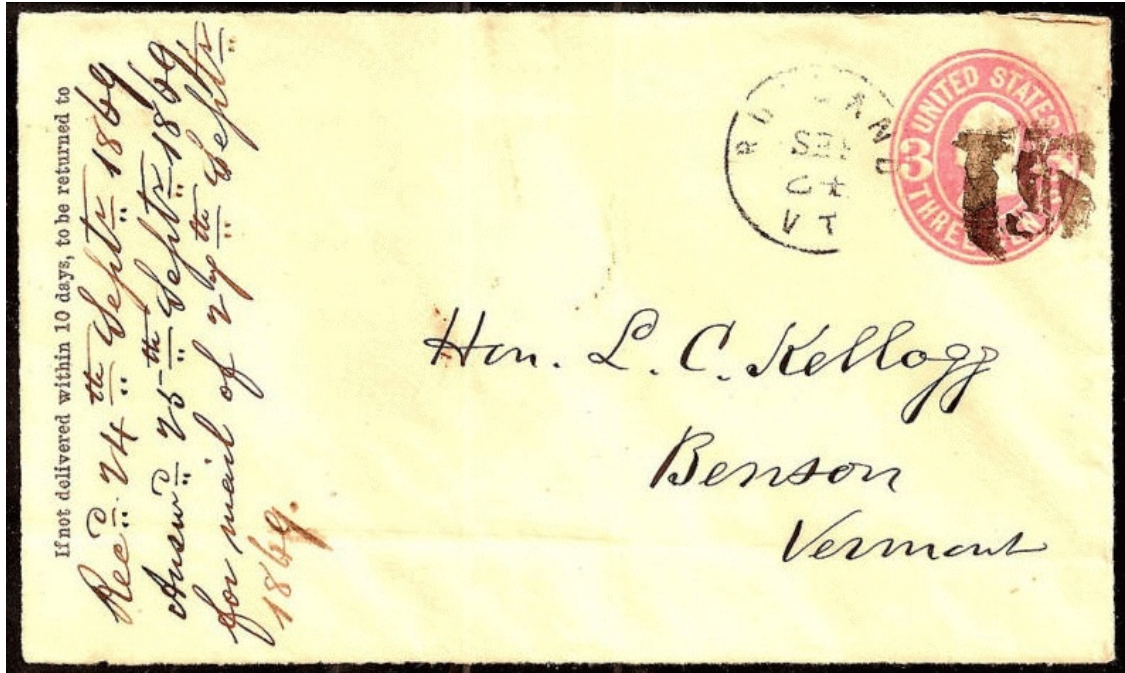 If not delivered within 10 days, to be returned to
Rec'd 24th Septr 1869
Answd 25th Septr 1869
for mail of 27th Septr
1869.
RUTLAND
SEP
VT
UNITED STATES
3
THREE CENTS
Hon. L. C. Kellogg
Benson
Vermont